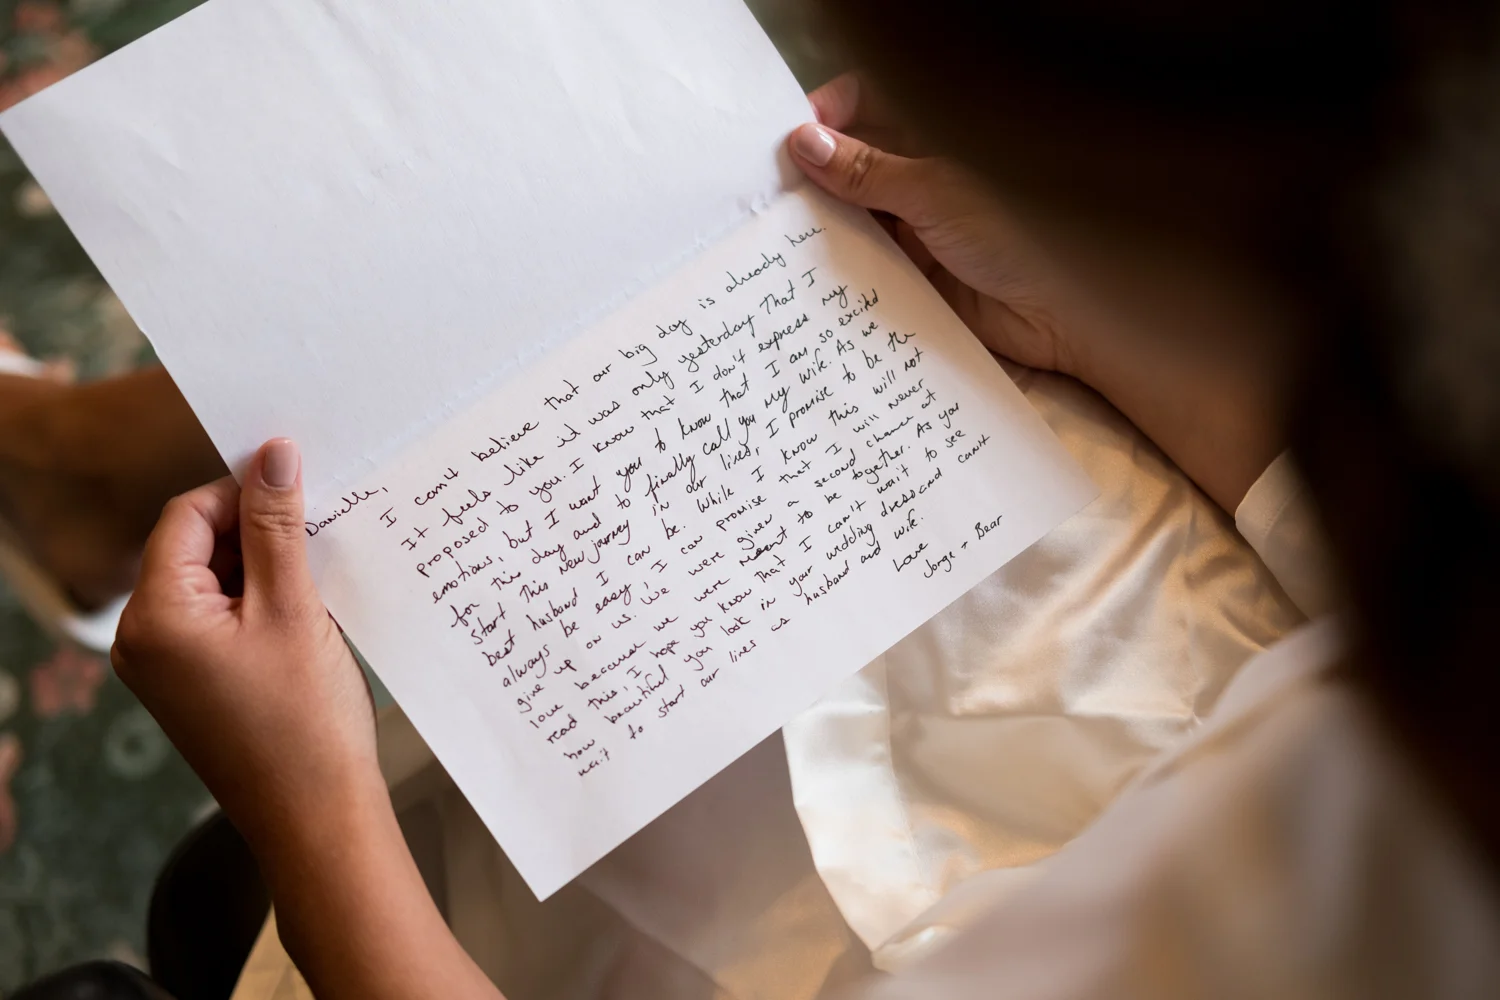 Danielle,
I can't believe that our big day is already here.
It feels like it was only yesterday that I
proposed to you. I know that I don't express my
emotions, but I want you to know that I am so excited
for this day and to finally call you my wife. As we
start this new journey in our lives, I promise to be the
best husband I can be. While I know this will not
always be easy, I can promise that I will never
give up on us. We were given a second chance at
love because we were meant to be together. As you
read this, I hope you know that I can't wait to see
how beautiful you look in your wedding dress and cannot
wait to start our lives as husband and wife.
Love
Jorge + Bear